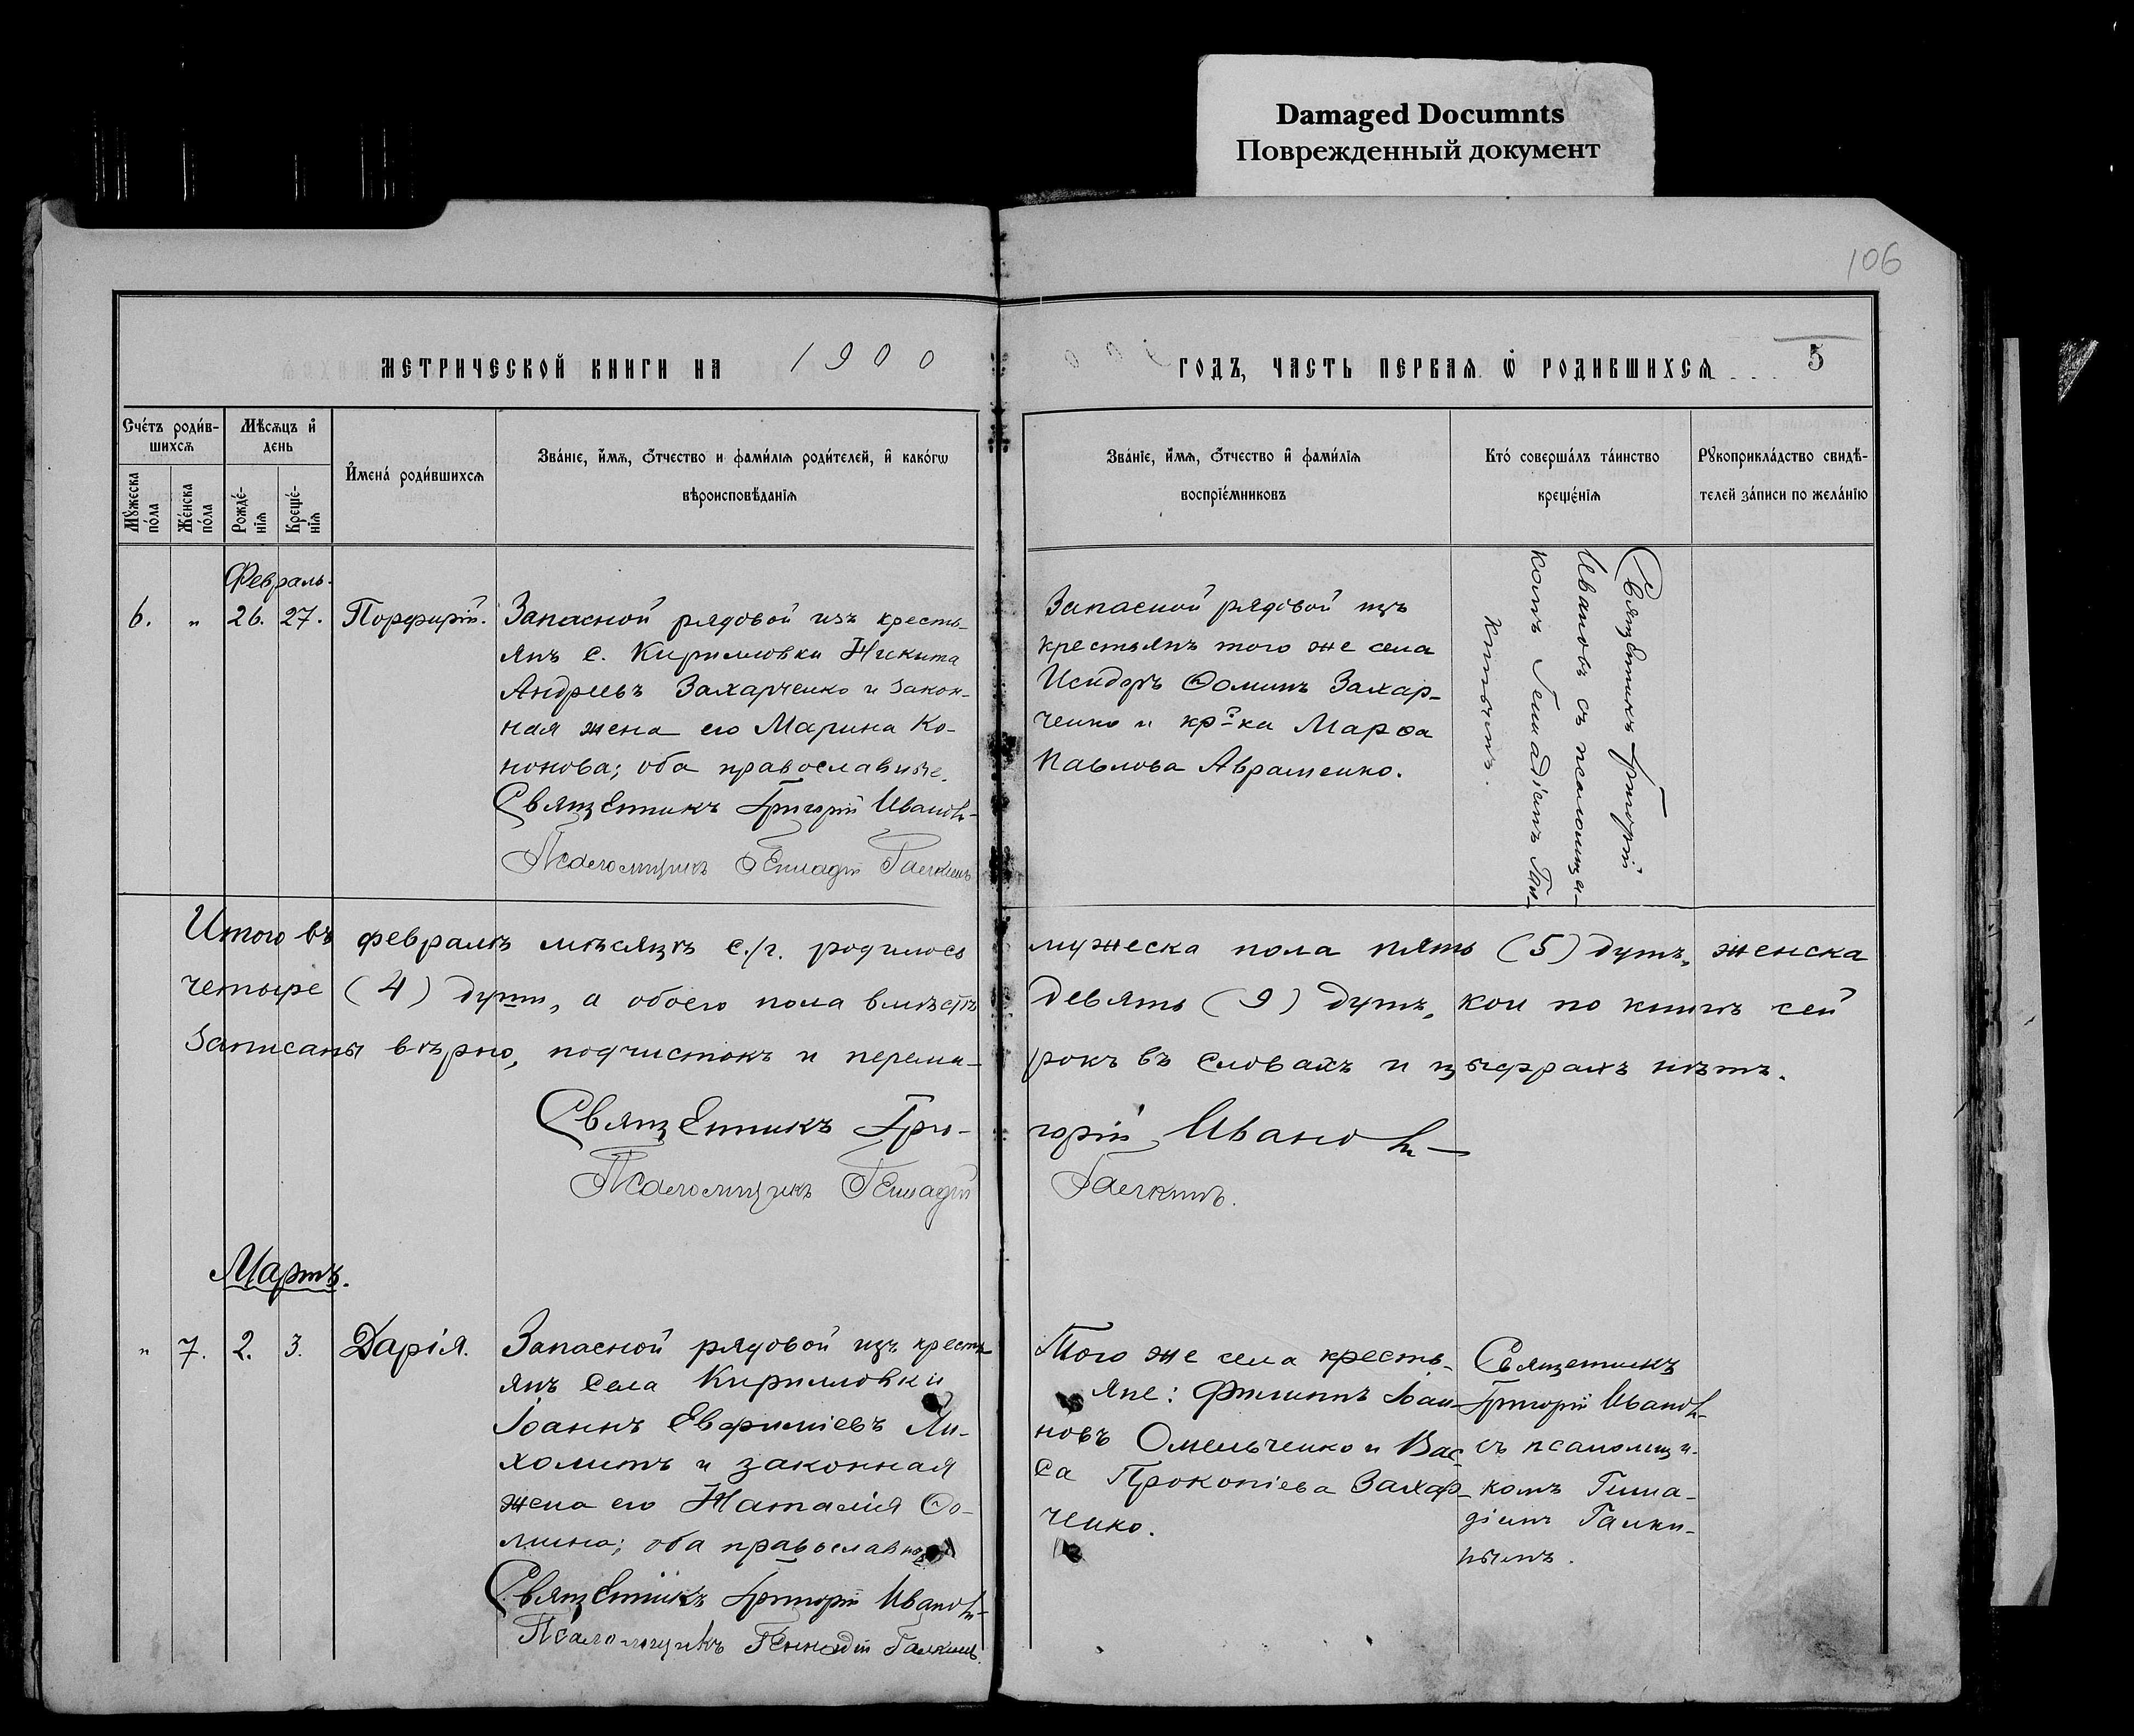 Damaged Documnts
Поврежденный документ
106
МЕТРИЧЕСКОЙ КНИГИ НА 1900
ГОДЪ, ЧАСТЬ ПЕРВАЯ Ѡ РОДИВШИХСЯ 5
Сче́тъ роди́в-
шихсѧ
Мѣсѧцъ и҆
день
Мꙋжеска
по́ла
Же́нска
по́ла
Рожде́-
нїѧ
Креще́-
нїѧ
И҆мена̀ роди́вшихсѧ
Зва́нїе, и҆́мѧ, ѻ҆́тчество и фами́лїѧ роди́телей, и҆ како́гѡ
вѣроисповѣ́данїѧ
Зва́нїе, и҆́мѧ, ѻ҆́тчество и҆ фами́лїѧ
воспрїе́мниковъ
Кто́ соверша́лъ та́инство
креще́нїѧ
Рꙋкоприкла́дство свидѣ́-
телей за́писи по жела́нїю
Февраль.
6. " 26. 27. Порфирій.
Запасной рядовой изъ кресть-
янъ с. Кирилловки Никита
Андреевъ Захарченко и закон-
ная жена его Марина Ко-
нонова; оба православные.
Священникъ Григорій Ивановъ
Псаломщикъ Геннадій Галкинъ
Запасной рядовой изъ
крестьянъ того же села
Исидоръ Ѳоминъ Захар-
ченко и кр-ка Марѳа
Павлова Авраменко.
Священникъ Григорій
Ивановъ съ псаломщи-
комъ Геннадіемъ Гал-
кинымъ.
Итого въ февралѣ мѣсяцѣ с./г. родилось мужеска пола пять (5) душъ, женска
четыре (4) души, а обоего пола вмѣстѣ девять (9) душъ, кои по книгѣ сей
записаны вѣрно, подчистокъ и перема- рокъ въ словахъ и цыфрахъ нѣтъ.
Священникъ Гри- горій Ивановъ
Псаломщикъ Геннадій Галкинъ.
Мартъ.
" 7. 2. 3. Дарія.
Запасной рядовой изъ кресть
янъ села Кирилловки
Іоаннъ Евфиміевъ Ли-
холитъ и законная
жена его Наталія Ѳо-
мина; оба православные
Священникъ Григорій Ивановъ
Псаломщикъ Геннадій Галкинъ.
Того же села кресть-
яне: Филиппъ Іоан-
новъ Омельченко и Вас-
са Прокопіева Захар-
ченко.
Священникъ
Григорій Ивановъ
съ псаломщи-
комъ Генна-
діемъ Галки-
нымъ.